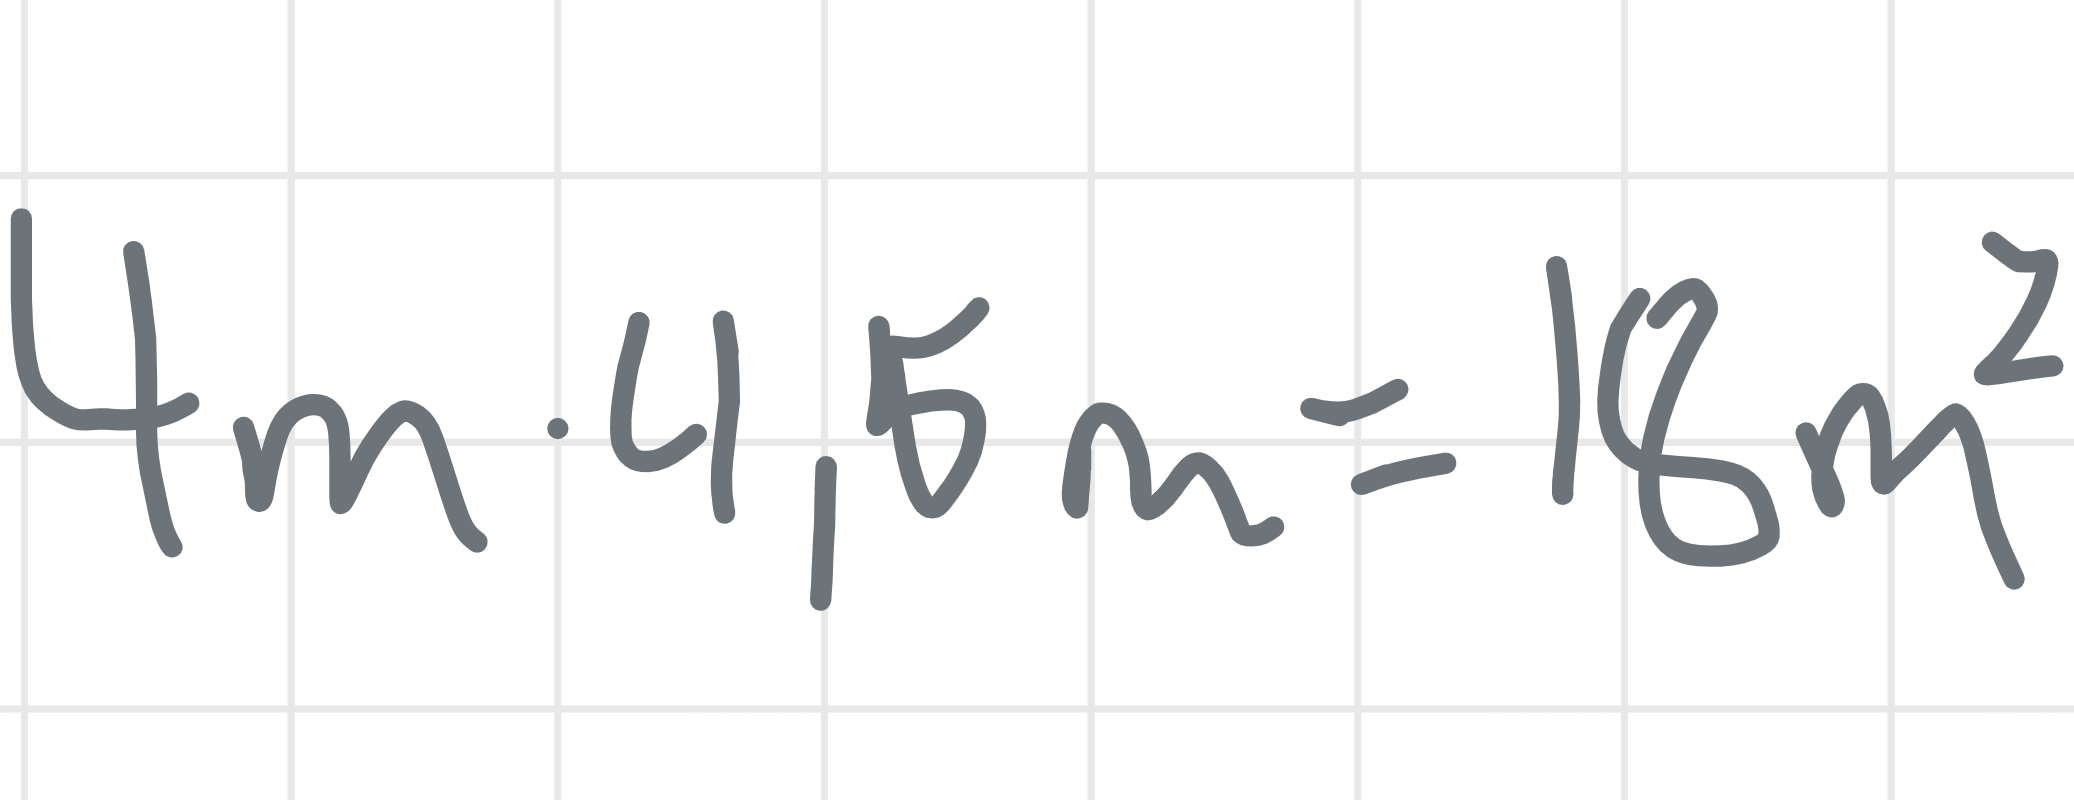 4m · 4,5m = 18m²